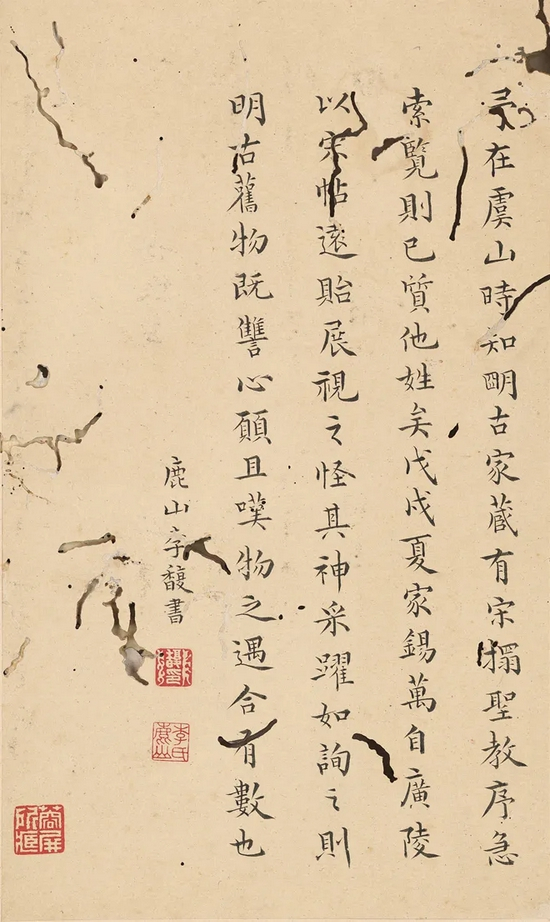 予在虞山時知明古家藏有宋搨聖教序急
索覽則已質他姓矣戊戌夏家錫萬自廣陵
以宋帖遠貽展視之怪其神采躍如詢之則
明古舊物既讐心願且嘆物之遇合有數也
鹿山李馥書
李氏鹿山